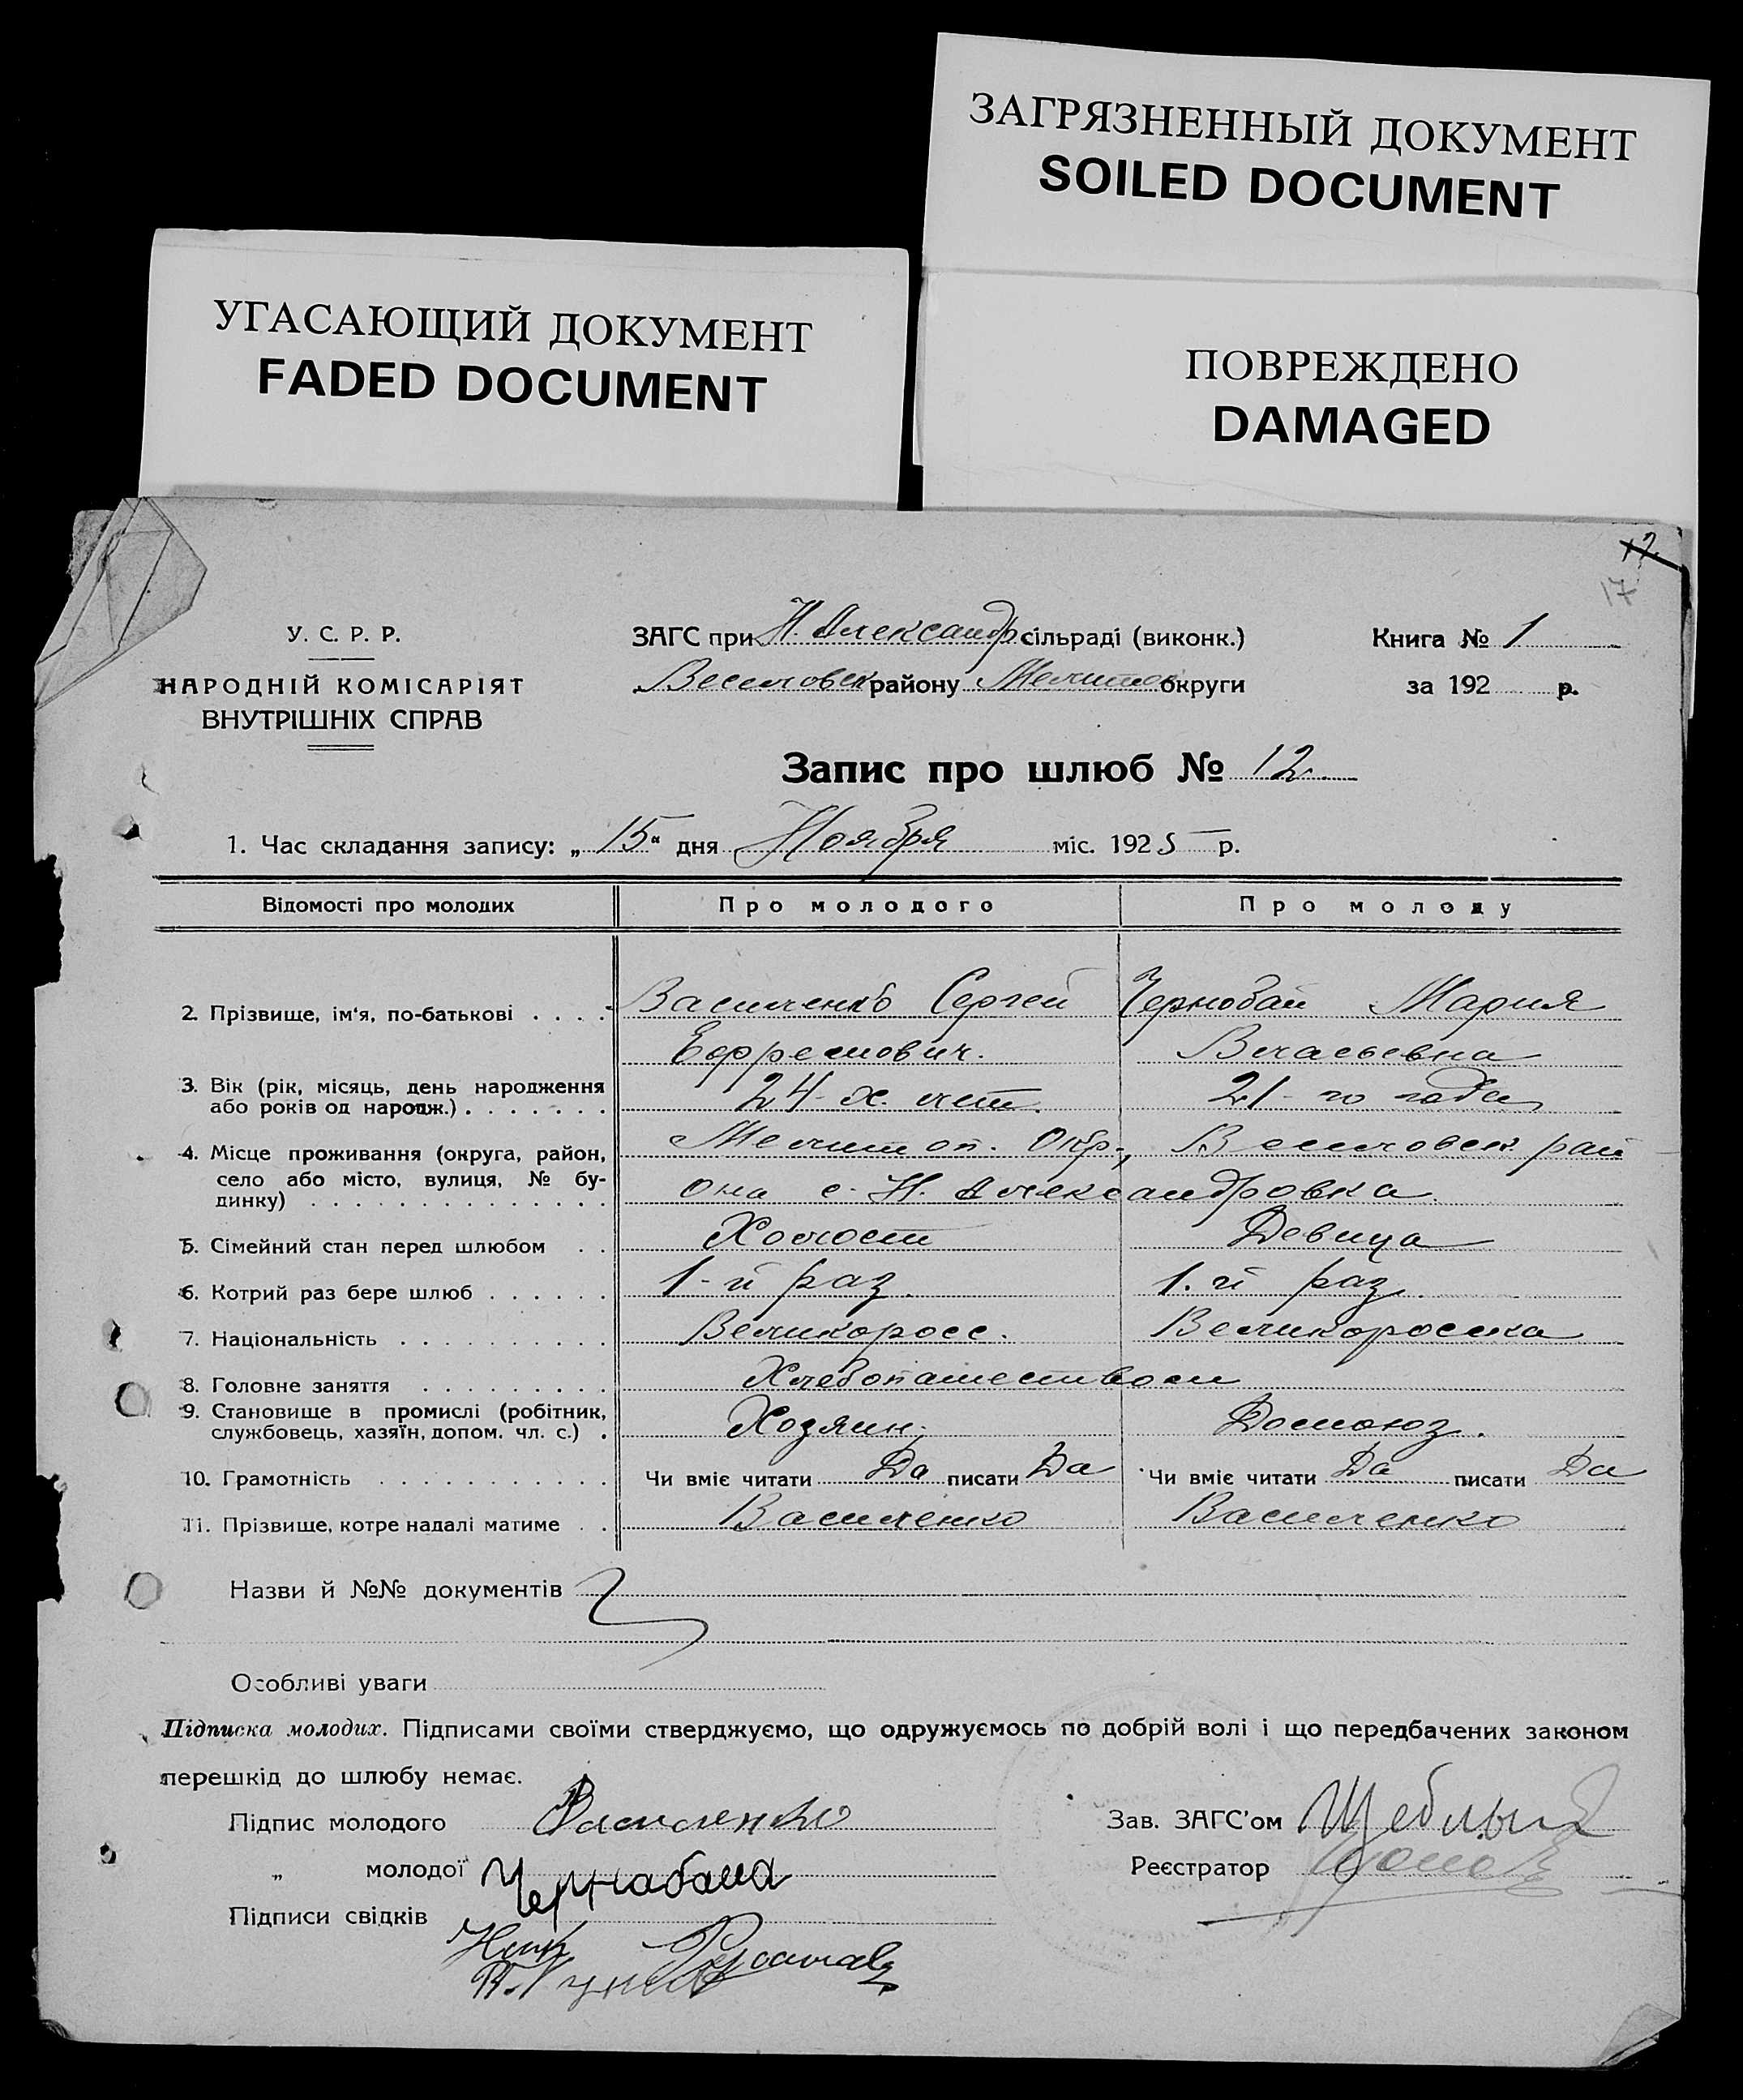 ЗАГРЯЗНЕННЫЙ ДОКУМЕНТ
SOILED DOCUMENT
УГАСАЮЩИЙ ДОКУМЕНТ
FADED DOCUMENT
ПОВРЕЖДЕНО
DAMAGED
12
17
У. С. Р. Р.
НАРОДНІЙ КОМІСАРІЯТ
ВНУТРІШНІХ СПРАВ
ЗАГС при Н. Александр. сільраді (виконк.)
Веселовск району Мелитоп округи
Книга № 1
за 192 р.
Запис про шлюб № 12.
1. Час складання запису: „ 15 “ дня Ноября міс. 1925 р.
Відомості про молодих Про молодого Про молоду
2. Прізвище, ім‘я, по-батькові . . . . Василенко Сергей Чернобай Мария
Ефремович. Власьевна
3. Вік (рік, місяць, день народження
або років од народж.) . . . . . . . 24-х лет. 21-го года
4. Місце проживання (округа, район,
село або місто, вулиця, № бу-
динку) . . . . . . . . . . . . . .
Мелитоп. Окр., Веселовск рай
она с. Н. Александровка.
5. Сімейний стан перед шлюбом . . Холост Девица
6. Котрий раз бере шлюб . . . . . . 1-й раз. 1.й раз.
7. Національність . . . . . . . . . . Великоросс. Великоросска
8. Головне заняття . . . . . . . . . Хлебопашеством
9. Становище в промислі (робітник,
службовець, хазяїн, допом. чл. с.) . Хозяин. Домохоз.
10. Грамотність . . . . . . . . . . . Чи вміє читати Да писати Да Чи вміє читати Да писати Да
11. Прізвище, котре надалі матиме . . Василенко Василенко
Назви й №№ документів
Особливі уваги
Підписка молодих. Підписами своїми стверджуємо, що одружуємось по добрій волі і що передбачених законом
перешкід до шлюбу немає.
Підпис молодого Василенко
„ молодої Чернабаиа
Підписи свідків
Зав. ЗАГС’ом
Реєстратор